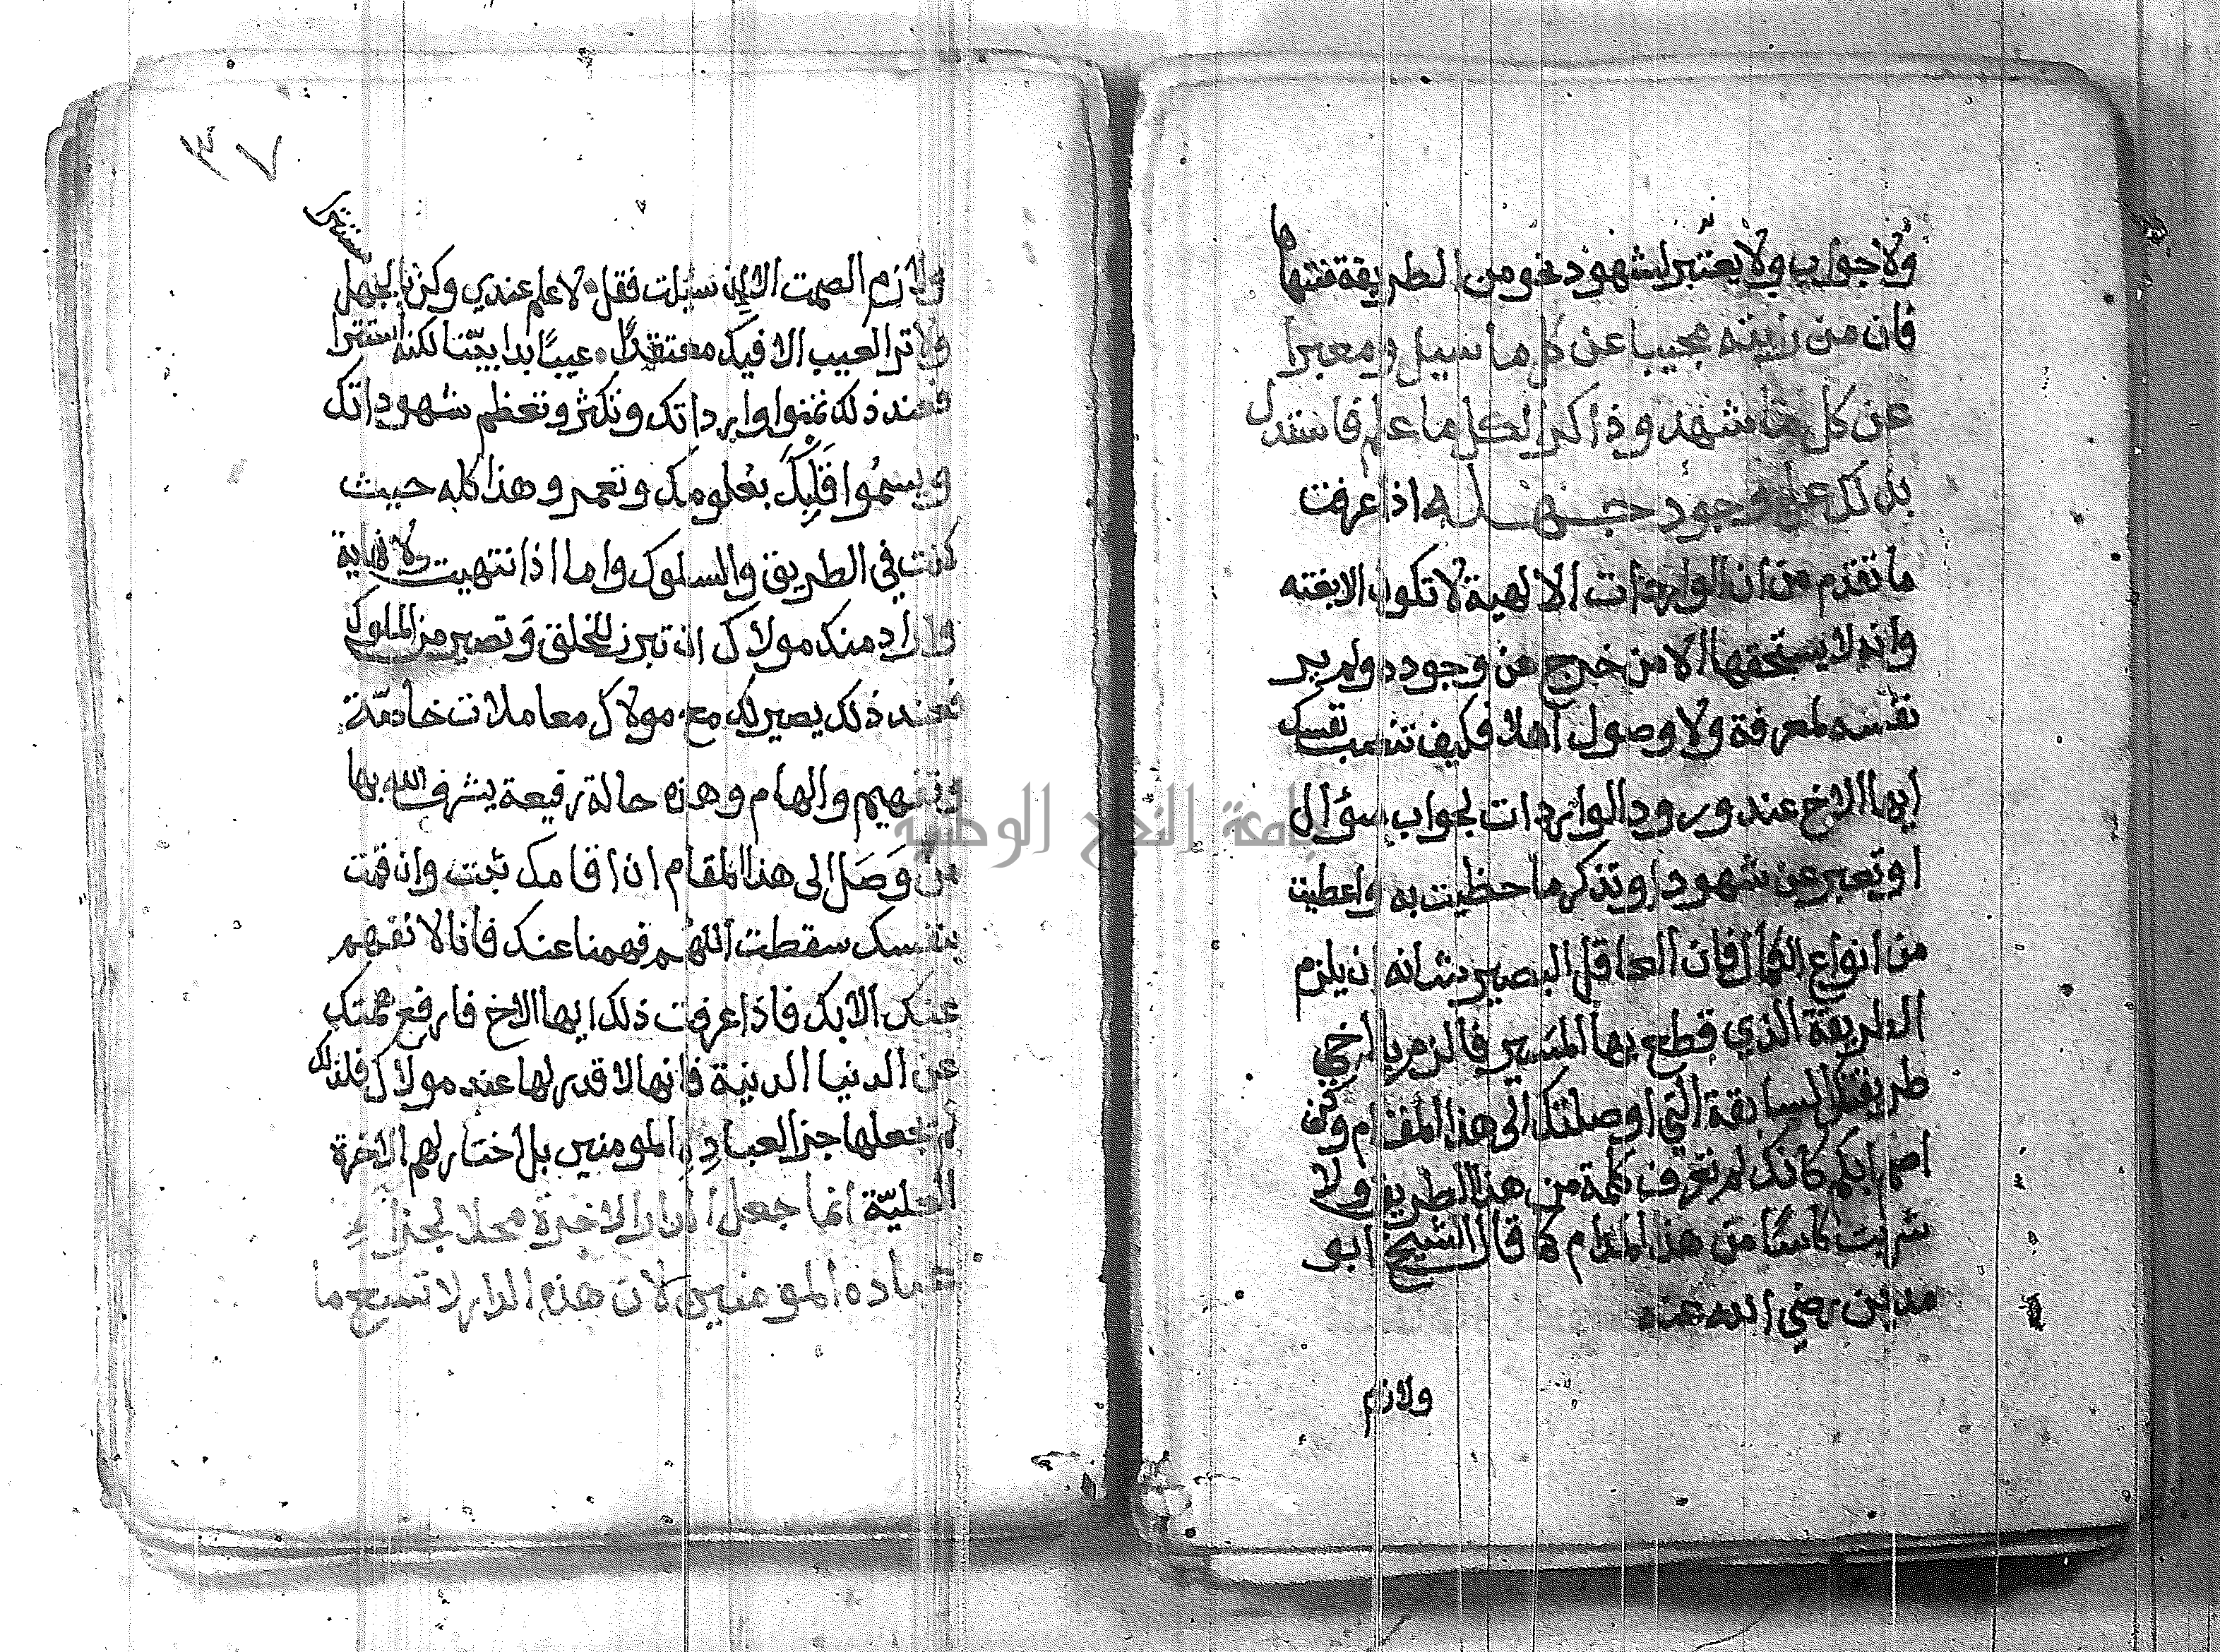 ولا جواب ولا يعتبر لشهود نحو من الطريقة فتنها
فان من رايته مجيبا عن كل ما سيل ومعبرا
عن كل ما شهد وذاكرا لكل ما علم فاستدل
بذلك على وجود جهله اذا عرفت
ما تقدم من ان الواردات الالهية لا تكون الا بغتة
وانه لا يستحقها الا من خرج عن وجوده ولم ير
نفسه لمعرفة ولا وصول اهلا فكيف تنصب نفسك
ايها الاخ عند ورود الواردات لجواب سؤال
او تعبير عن شهود او تذكر ما حظيت به واعطيت
من انواع الكمال فان العاقل البصير شانه ان يلزم
الطريقة الذي قطع بها المسير فالزم يا اخي
طريقتك السابقة التي اوصلتك الى هذا المقام وكن
اصم ابكم كانك لم تعرف كلمة من هذا الطريق ولا
شربت كاسا من هذا المدام كما قال الشيخ ابو
مدين رضي الله عنه
ولازم
٣٧
ولازم الصمت الا ان سئلت فقل لا علم عندي وكن بالجهل مستترا
ولا تر العيب الا فيك معتقدا عيبا بدا بينا لكنه استترا
فعند ذلك تنموا وارداتك وتكثر وتعظم شهوداتك
ويسموا قلبك بعلومك وتعمر وهذا كله حيث
كنت في الطريق والسلوك واما اذا انتهيت ولا نهاية
واراد منك مولاك ان تبرز للخلق وتصير من الملوك
فعند ذلك يصير لك مع مولاك معاملات خاصّة
وتفهيم والهام وهذه حالة رفيعة يشرف الله بها
من وَصَل الى هذا المقام ان اقامك ثبت وان قمت
بنفسك سقطت اللهم فهمنا عنك فانا لا نفهم
عنك الا بك فاذا عرفت ذلك ايها الاخ فارفع همتك
عن الدنيا الدنية فانها لا قدر لها عند مولاك فلذلك
لم يجعلها جزا لعباده المومنين بل اختار لهم الاخرة
العليّة انما جعل الدار الاخرة محلا لجزا
عباده المومنين لان هذه الدار لا تسع ما
جامعة النجاح الوطنية